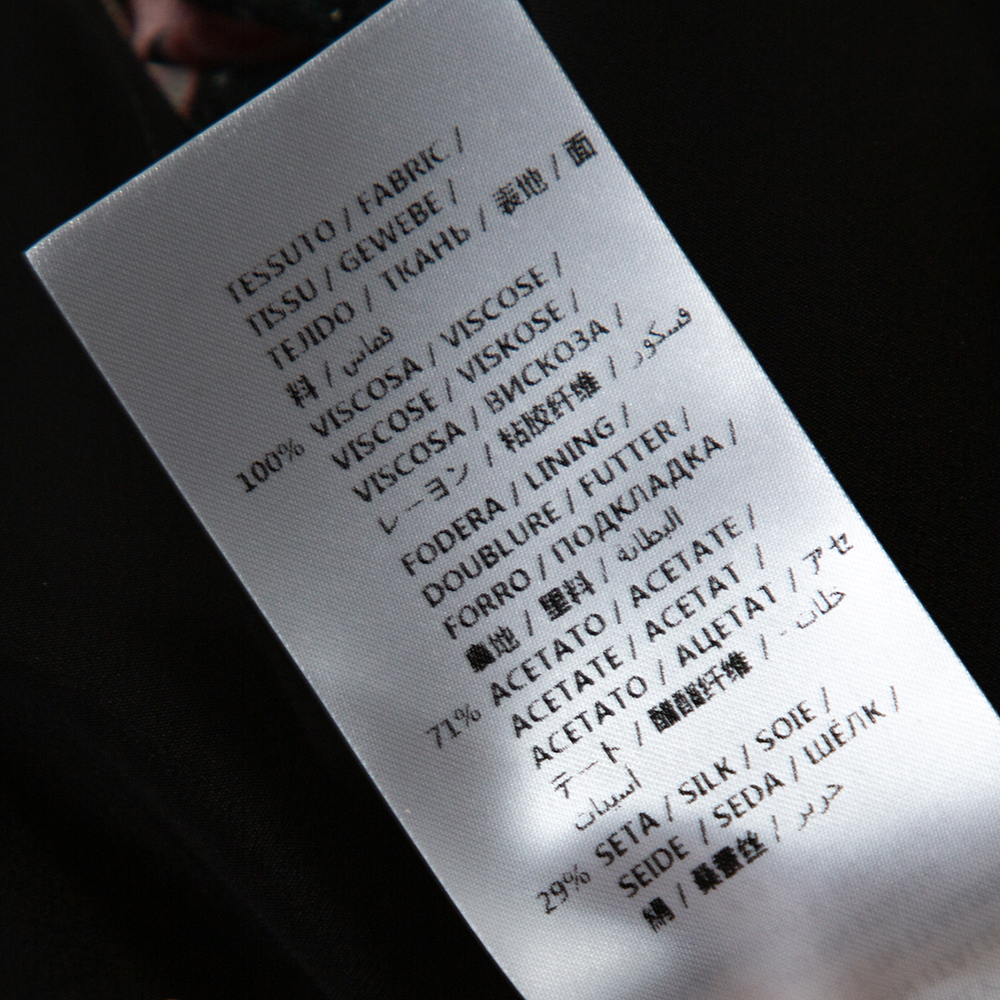 TESSUTO / FABRIC /
TISSU / GEWEBE /
TEJIDO / ТКАНЬ / 表地 / 面
料 / قماش
100% VISCOSA / VISCOSE /
VISCOSE / VISKOSE /
VISCOSA / ВИСКОЗА /
レーヨン / 粘胶纤维 / فسكوز
FODERA / LINING /
DOUBLURE / FUTTER /
FORRO / ПОДКЛАДКА /
裏地 / 里料 / البطانه
71% ACETATO / ACETATE /
ACETATE / ACETAT /
ACETATO / АЦЕТАТ / アセ
テート / 醋酯纤维 / - خلات
اسيتات
29% SETA / SILK / SOIE /
SEIDE / SEDA / ШЁЛК /
絹 / 桑蚕丝 / حرير